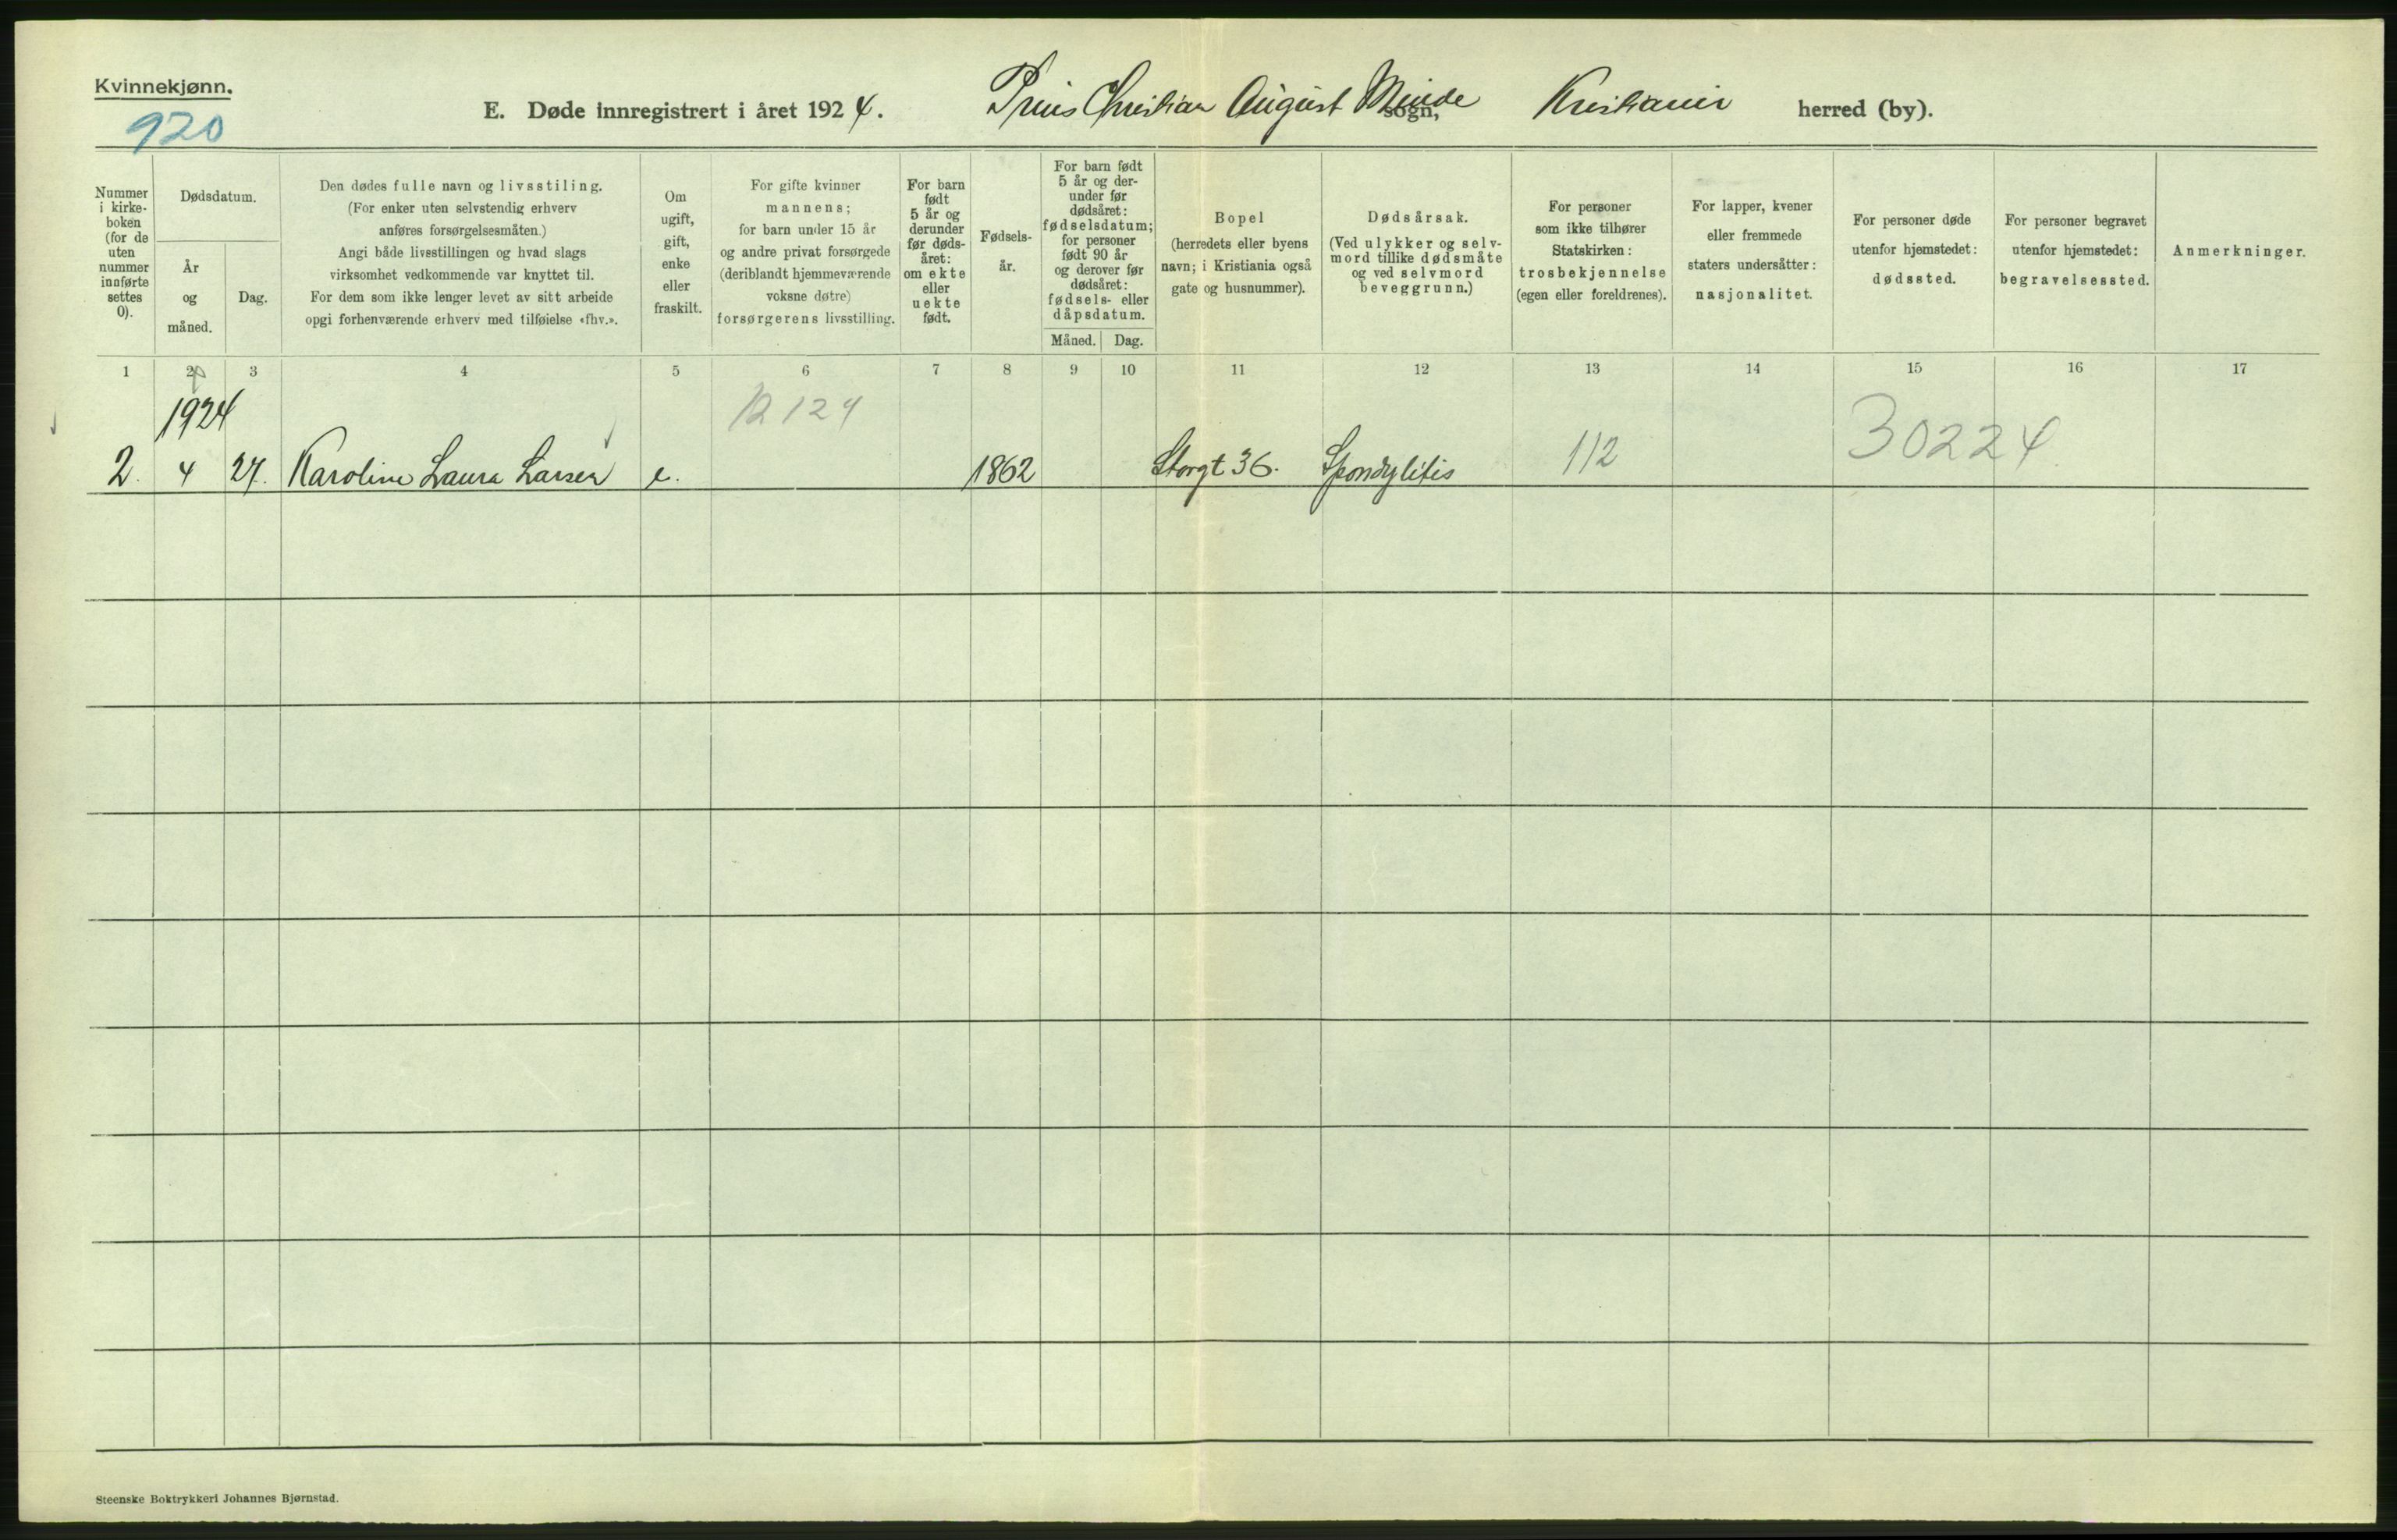 Kvinnekjønn.
920
E. Døde innregistrert i året 1924. Prins Christian August Minde sogn, Kristiania herred (by).
Nummer i kirkeboken (for de uten nummer innførte settes 0).
Dødsdatum.
År og måned.
Dag.
Den dødes fulle navn og livsstiling.
(For enker uten selvstendig erhverv
anføres forsørgelsesmåten.)
Angi både livsstillingen og hvad slags
virksomhet vedkommende var knyttet til.
For dem som ikke lenger levet av sitt arbeide
opgi forhenværende erhverv med tilføielse «fhv.».
Om
ugift,
gift,
enke
eller
fraskilt.
For gifte kvinner
mannens;
for barn under 15 år
og andre privat forsørgede
(deriblandt hjemmeværende
voksne døtre)
forsørgerens livsstilling.
For barn
født
5 år og
derunder
før døds-
året:
om ekte
eller
uekte
født.
Fødsels-
år.
For barn født
5 år og der-
under før
dødsåret:
fødselsdatum;
for personer
født 90 år
og derover før
dødsåret:
fødsels- eller
dåpsdatum.
Måned. Dag.
Bopel
(herredets eller byens
navn; i Kristiania også
gate og husnummer).
Dødsårsak.
(Ved ulykker og selv-
mord tillike dødsmåte
og ved selvmord
beveggrunn.)
For personer
som ikke tilhører
Statskirken:
trosbekjennelse
(egen eller foreldrenes).
For lapper, kvener
eller fremmede
staters undersåtter:
nasjonalitet.
For personer døde
utenfor hjemstedet:
dødssted.
For personer begravet
utenfor hjemstedet:
begravelsessted.
Anmerkninger.
1 2 3 4 5 6 7 8 9 10 11 12 13 14 15 16 17
1924 12124 30224
2. 4 27. Karoline Laura Larsen e. 1862 Storgt 36. Spondylitis 112
Steenske Boktrykkeri Johannes Bjørnstad.